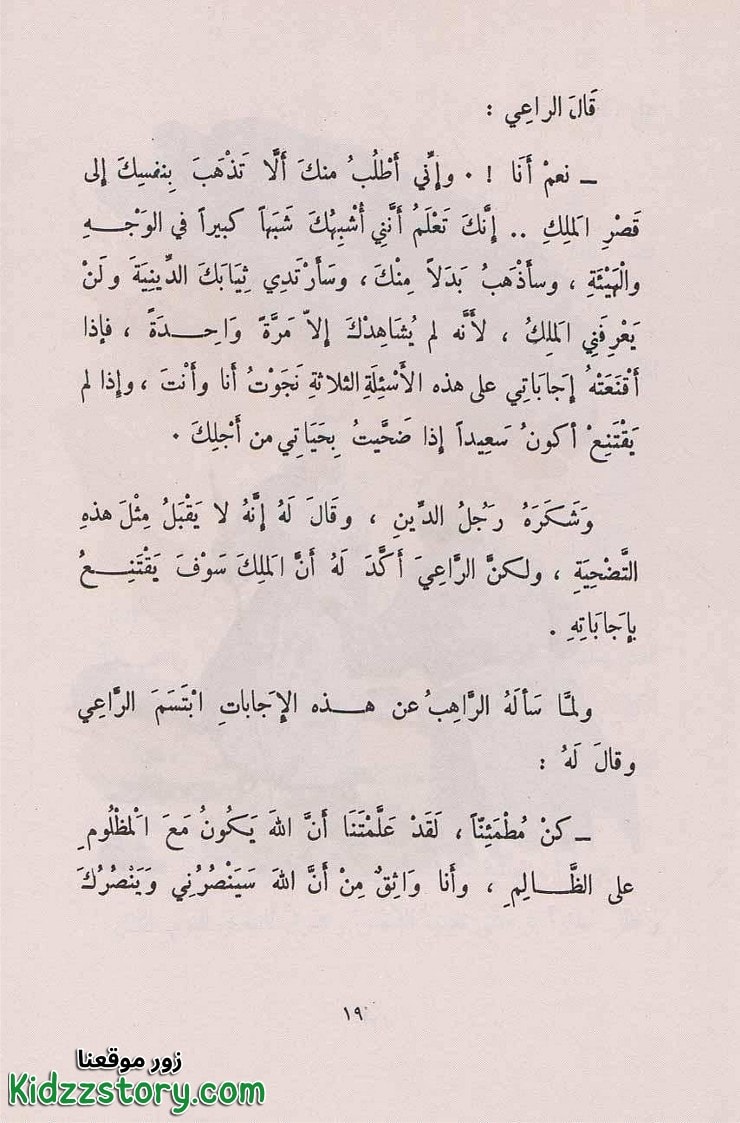 قَالَ الراعِي :
ــ نعمْ أَنَا ! ٠ وإنِّي أَطْلُبُ منكَ أَلَّا تَذْهَبَ بِنفسِكَ إلى
قَصْرِ المَلِكِ .. إنَّكَ تَعْلَمُ أَنَّنِي أُشْبِهُكَ شَبَهاً كبيراً في الوَجْـهِ
والْهَيْئَةِ ، وسأَذْهَبُ بَدَلاً مِنْكَ ، وسَأَرْتَدِي ثِيَابَكَ الدِّينِيَةَ ولَنْ
يَعْرِفَنِي المَلِكُ ، لأَنَّه لم يُشَاهِدْكَ إلاّ مَرَّةً وَاحِـدَةً ، فإذا
أَقْنَعَتْهُ إجَابَاتِي على هذه الأَسْئِلَةِ الثلاثةِ نَجَوْتُ أنا وأَنْتَ ، وإذا لم
يَقْتَنِعْ أكونُ سَعِيداً إذا ضَحَّيتُ بِحَيَاتِي من أَجْلِكَ ٠
وَشَكَرَهُ رَجُلُ الدِّينِ ، وقَالَ لَهُ إنَّهُ لا يَقْبَلُ مِثْلَ هذهِ
التَّضْحِيَةِ ، ولكنَّ الرَّاعِيَ أَكَّدَ لَهُ أنَّ المَلِكَ سَوْفَ يَقْتَنِـــعُ
بإجَابَاتِهِ .
ولمَّا سَألَهُ الرَّاهِبُ عن هـــذه الإجَاباتِ ابْتَسَمَ الرَّاعِي
وقالَ لَهُ :
ــ كنْ مُطْمَئِنّاً ، لَقَدْ عَلَّمْتَنَا أَنَّ اللهَ يَكُونُ مَعَ الْمَظْلُومِ
على الظَّـــالِمِ ، وأَنا وَاثِقٌ مِنْ أَنَّ اللهَ سَيَنْصُرُنِي وَيَنْصُرُكَ
١٩
زور موقعنا
Kidzzstory.com